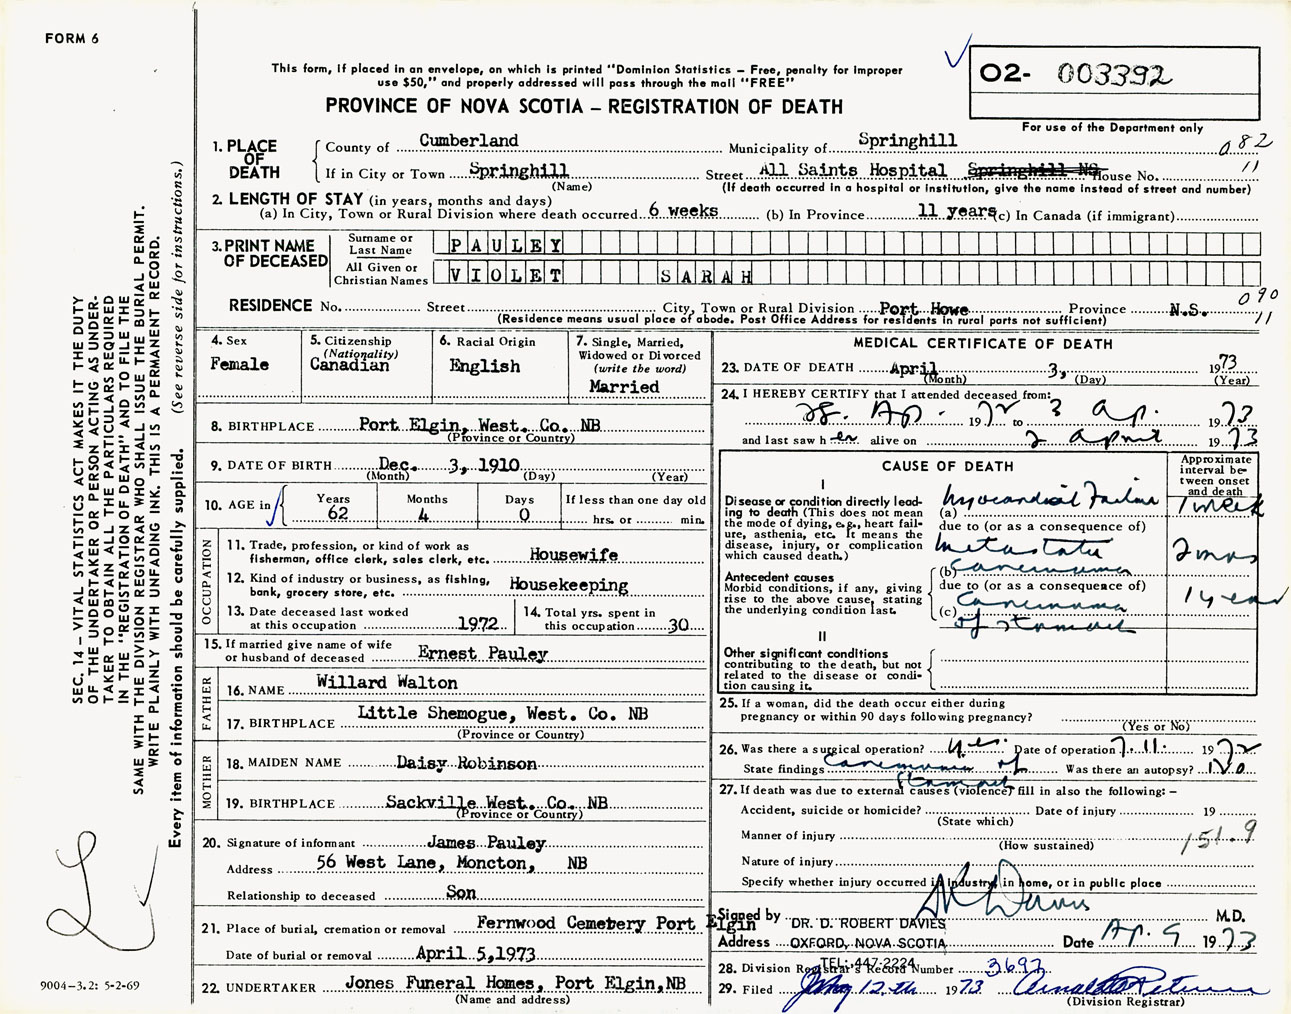 FORM 6
This form, if placed in an envelope, on which is printed "Dominion Statistics – Free, penalty for improper
use $50," and properly addressed will pass through the mail "FREE"
O2- 003392
PROVINCE OF NOVA SCOTIA – REGISTRATION OF DEATH
For use of the Department only
1. PLACE OF DEATH
County of Cumberland Municipality of Springhill 082
If in City or Town Springhill Street All Saints Hospital Springhill NS House No. 11
(Name) (If death occurred in a hospital or institution, give the name instead of street and number)
2. LENGTH OF STAY (in years, months and days)
(a) In City, Town or Rural Division where death occurred 6 weeks (b) In Province 11 years (c) In Canada (if immigrant)
3. PRINT NAME OF DECEASED
Surname or Last Name PAULEY
All Given or Christian Names VIOLET SARAH
RESIDENCE No. Street City, Town or Rural Division Port Howe Province N.S. 090 11
(Residence means usual place of abode. Post Office Address for residents in rural parts not sufficient)
4. Sex Female
5. Citizenship (Nationality) Canadian
6. Racial Origin English
7. Single, Married, Widowed or Divorced (write the word) Married
8. BIRTHPLACE Port Elgin, West. Co. NB
(Province or Country)
9. DATE OF BIRTH Dec. 3, 1910
(Month) (Day) (Year)
10. AGE in Years 62 Months 4 Days 0 If less than one day old hrs. or min.
OCCUPATION
11. Trade, profession, or kind of work as
fisherman, office clerk, sales clerk, etc. Housewife
12. Kind of industry or business, as fishing,
bank, grocery store, etc. Housekeeping
13. Date deceased last worked
at this occupation 1972
14. Total yrs. spent in
this occupation 30
15. If married give name of wife
or husband of deceased Ernest Pauley
FATHER
16. NAME Willard Walton
17. BIRTHPLACE Little Shemogue, West. Co. NB
(Province or Country)
MOTHER
18. MAIDEN NAME Daisy Robinson
19. BIRTHPLACE Sackville West. Co. NB
(Province or Country)
20. Signature of informant James Pauley
Address 56 West Lane, Moncton, NB
Relationship to deceased Son
21. Place of burial, cremation or removal Fernwood Cemetery Port Elgin
Date of burial or removal April 5,1973
22. UNDERTAKER Jones Funeral Homes, Port Elgin,NB
(Name and address)
MEDICAL CERTIFICATE OF DEATH
23. DATE OF DEATH April 3, 1973
(Month) (Day) (Year)
24. I HEREBY CERTIFY that I attended deceased from:
28. Ap. 1972 to 3 Ap. 1973
and last saw her alive on 2 April 1973
CAUSE OF DEATH
Approximate interval between onset and death
I
Disease or condition directly leading to death (This does not mean the mode of dying, e.g., heart failure, asthenia, etc. It means the disease, injury, or complication which caused death.)
(a) Myocardial Failure 1 week
due to (or as a consequence of)
Metastatic
(b) Carcinoma 2 mos
Antecedent causes
Morbid conditions, if any, giving rise to the above cause, stating the underlying condition last.
due to (or as a consequence of)
(c) Carcinoma of stomach 1 year
II
Other significant conditions
contributing to the death, but not related to the disease or condition causing it.
25. If a woman, did the death occur either during
pregnancy or within 90 days following pregnancy?
(Yes or No)
26. Was there a surgical operation? yes. Date of operation 7.11. 1972
State findings Carcinoma of stomach Was there an autopsy? No
27. If death was due to external causes (violence) fill in also the following: –
Accident, suicide or homicide? Date of injury 19
(State which)
Manner of injury 151.9
(How sustained)
Nature of injury
Specify whether injury occurred in industry, in home, or in public place
Signed by DR Davies M.D.
DR. D. ROBERT DAVIES
Address OXFORD, NOVA SCOTIA Date Ap. 9 1973
TEL: 447-2224
28. Division Registrar's Record Number 3692
29. Filed 12th 1973
(Division Registrar)
SEC. 14 – VITAL STATISTICS ACT MAKES IT THE DUTY
OF THE UNDERTAKER OR PERSON ACTING AS UNDER-
TAKER TO OBTAIN ALL THE PARTICULARS REQUIRED
IN THE "REGISTRATION OF DEATH" AND TO FILE THE
SAME WITH THE DIVISION REGISTRAR WHO SHALL ISSUE THE BURIAL PERMIT.
WRITE PLAINLY WITH UNFADING INK. THIS IS A PERMANENT RECORD.
Every item of information should be carefully supplied. (See reverse side for instructions.)
9004–3.2: 5-2-69